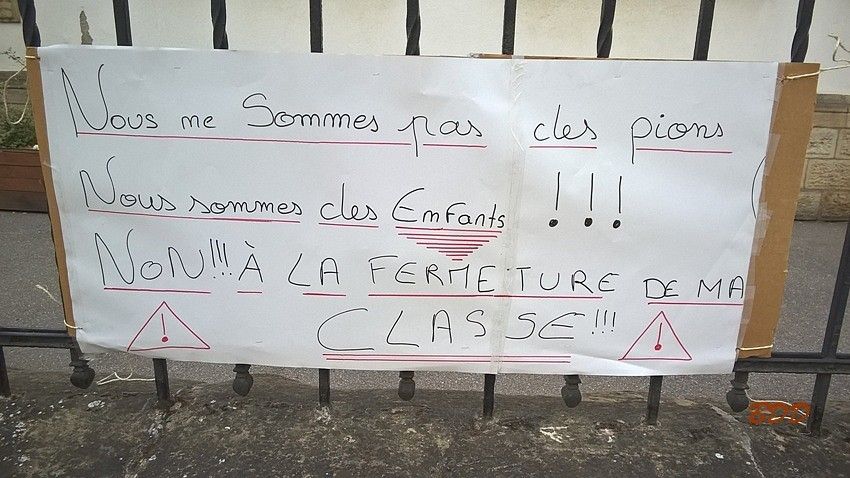 Nous ne Sommes pas des pions
Nous sommes des Enfants !!!
NON!!! À LA FERMETURE DE MA
CLASSE!!!